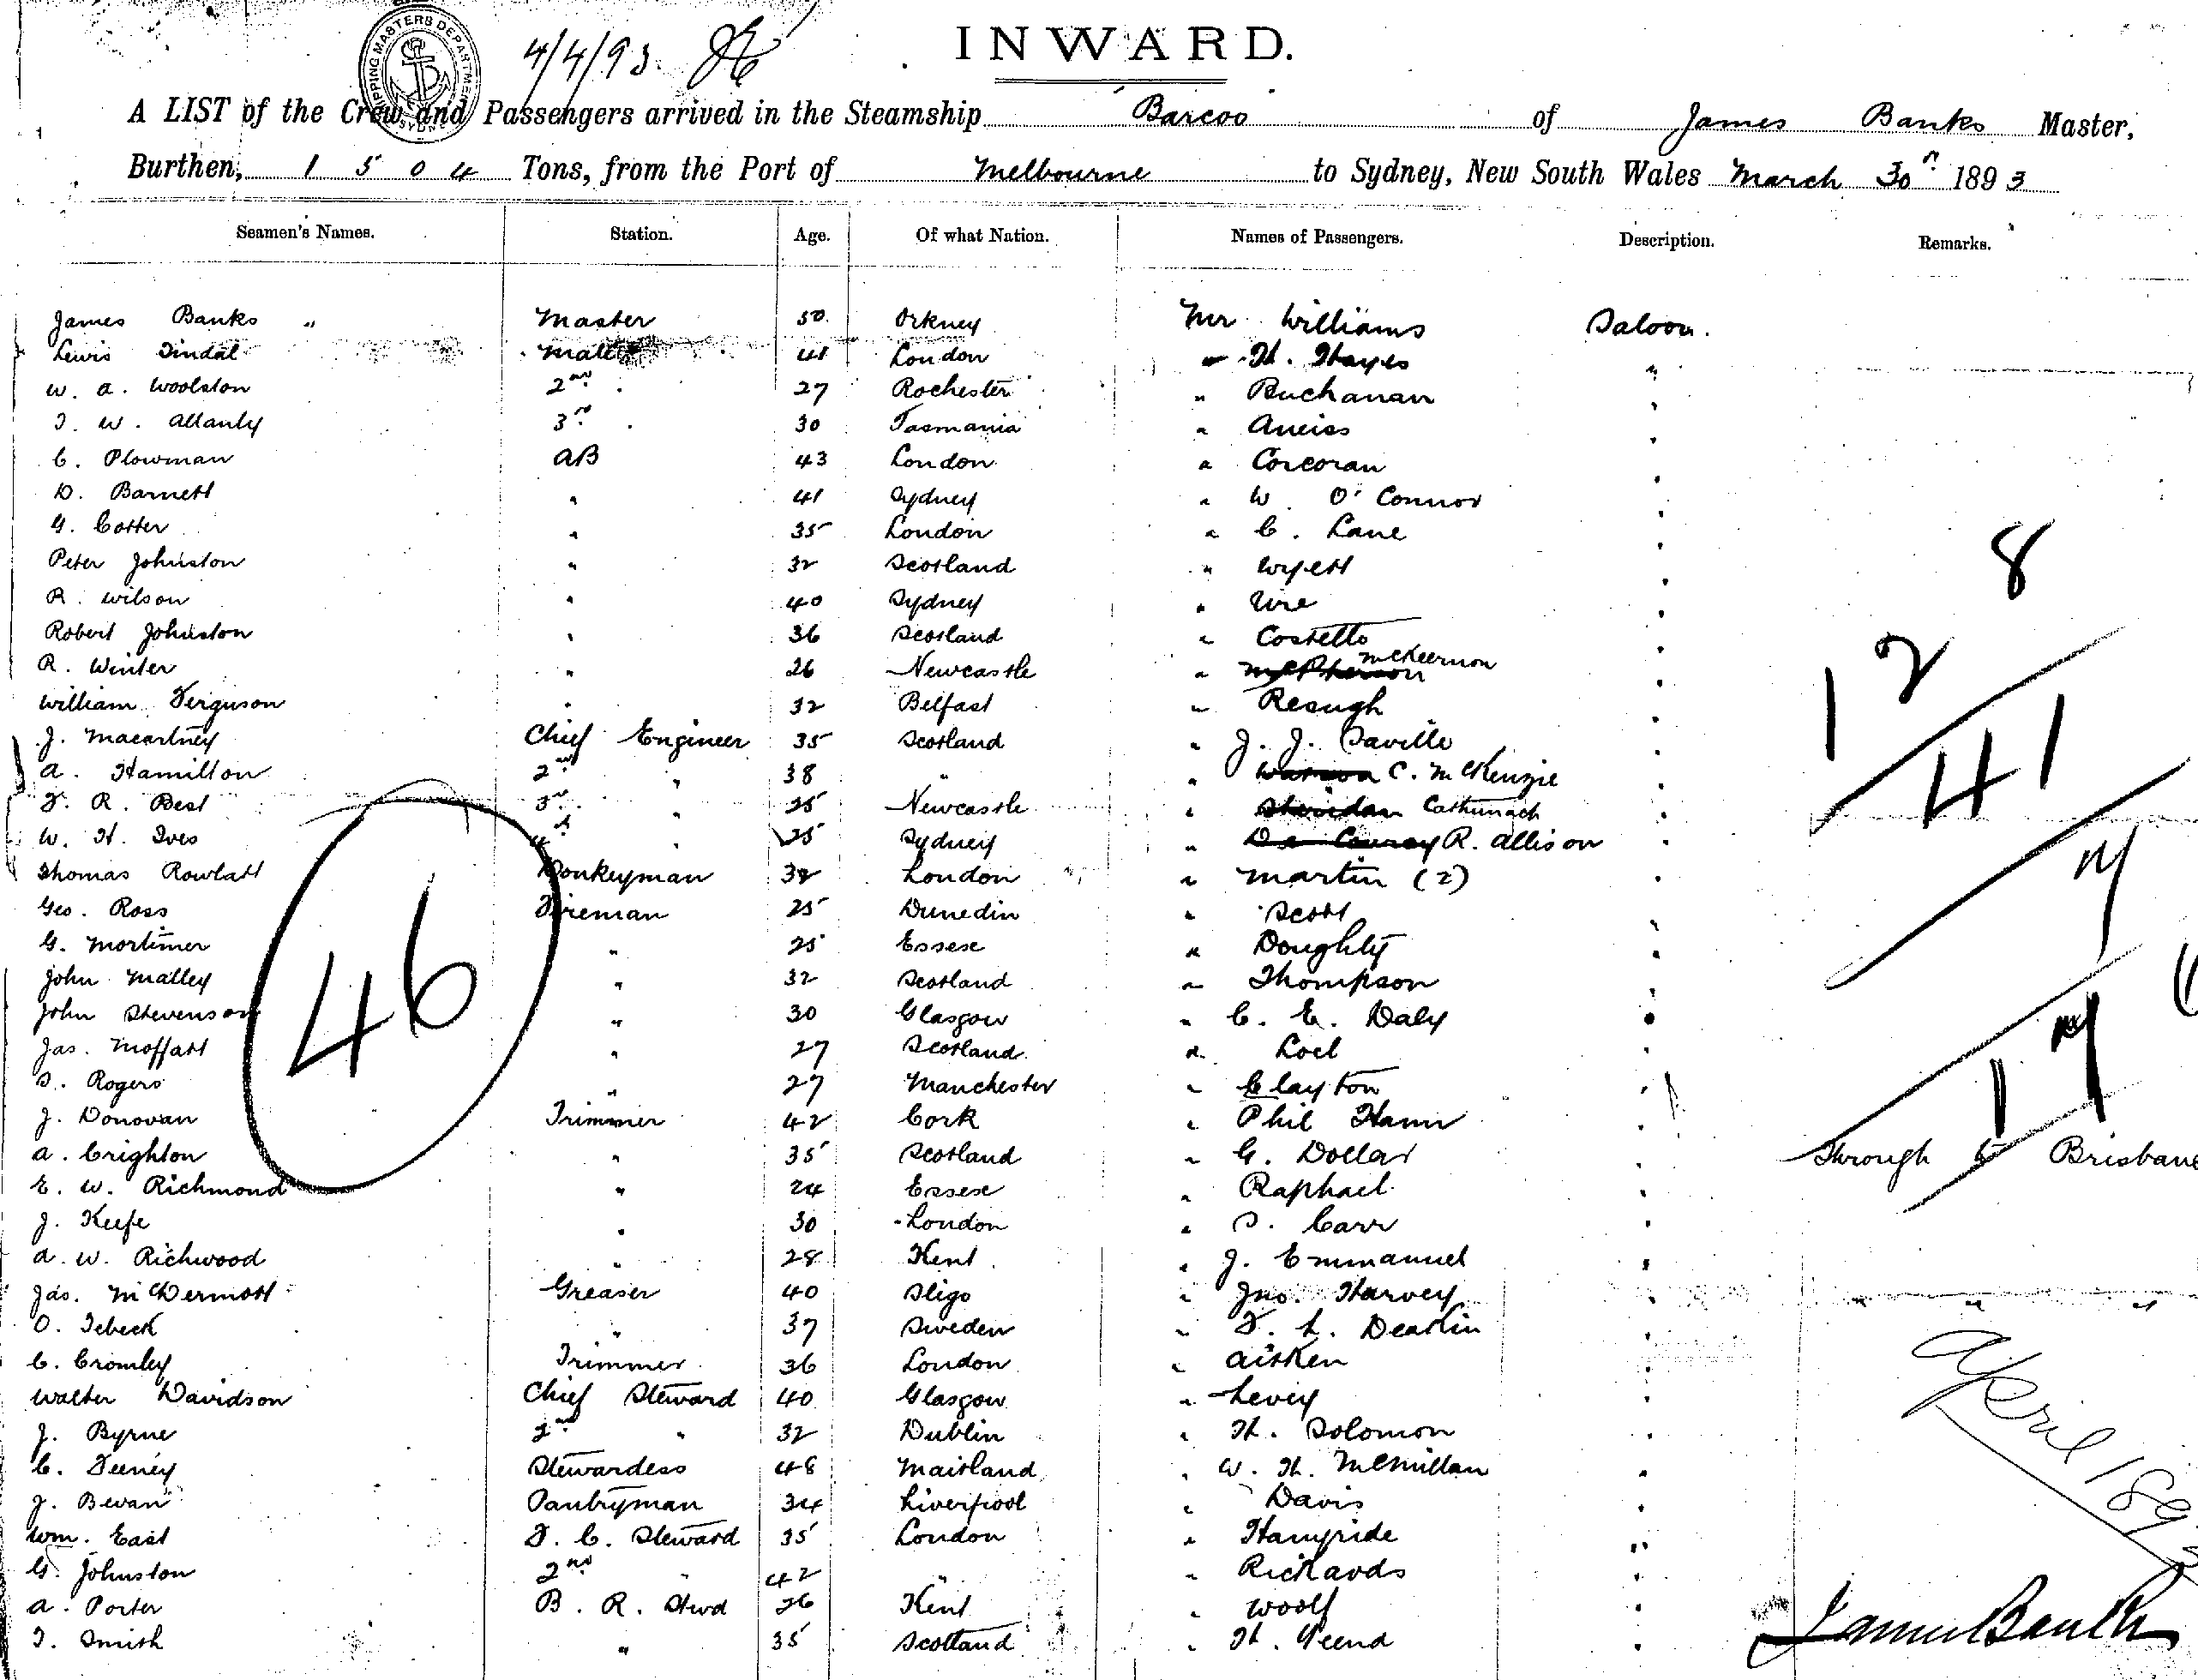 SHIPPING MASTERS DEPARTMENT SYDNEY
4/4/93.
INWARD.
A LIST of the Crew and Passengers arrived in the Steamship Barcoo of James Banks Master,
Burthen, 1504 Tons, from the Port of Melbourne to Sydney, New South Wales March 30th 1893
Seamen's Names. Station. Age. Of what Nation. Names of Passengers. Description. Remarks.
James Banks " Master 50 Orkney Mr Williams Saloon.
Lewis Tindal Mate 41 London " H. Hayes "
W. A. Woolston 2nd 27 Rochester " Buchanan "
T. W. Allanby 3rd 30 Tasmania "
C. Plowman AB 43 London " Corcoran "
D. Barnett " 41 Sydney " W O'Connor "
G. Cotter " 35 London " C. Lane "
Peter Johnston " 32 Scotland " Wyett "
R. Wilson " 40 Sydney " Ure "
Robert Johnston " 36 Scotland " Costello "
R. Winter " 26 Newcastle " McPherson McKeernon "
William Ferguson " 32 Belfast " Keough "
J. Macartney Chief Engineer 35 Scotland " J. J. Saville "
A. Hamilton 2nd " 38 " " Watson C. McKenzie "
F. R. Best 3rd " 25 Newcastle " Sheridan "
W. H. Ives 4th " 25 Sydney " De Courcy R. Allison "
Thomas Rowlatt Donkeyman 38 London " Martin (2) "
Geo. Ross Fireman 25 Dunedin " Scott "
G. Mortimer " 25 Essex " Doughty "
John Malley " 32 Scotland " Thompson "
John Stevenson " 30 Glasgow " C. E. Daly "
Jas. Moffatt " 27 Scotland " Loel "
S. Rogers " 27 Manchester " Clayton "
J. Donovan Trimmer 42 Cork " Phil Hann "
A. Crighton " 35 Scotland " G. Dollar " Through to Brisbane
E. W. Richmond " 24 Essex " Raphael "
J. Keefe " 30 London " S. Carr "
A. W. Richwood " 28 Kent " J. Emmanuel "
Jas. McDermott Greaser 40 Sligo " Jno. Harvey " " " "
O. Tebeck " 37 Sweden " F. L. Deakin "
C. Cromley Trimmer 36 London " Aitken "
Walter Davidson Chief Steward 40 Glasgow " Levey "
J. Byrne 2nd " 32 Dublin " H. Solomon "
C. Feeney Stewardess 48 Maitland " W. H. McMillan "
J. Bevan Pantryman 34 Liverpool " Davis "
Wm. East F. C. Steward 35 London " "
G. Johnston 2nd " 42 " " Rickards "
A. Porter B. R. Stwd 26 Kent " Woolf "
T. Smith " 35 Scotland " H. Weend "
46
8
12
41
7
17
April 1893
James Banks